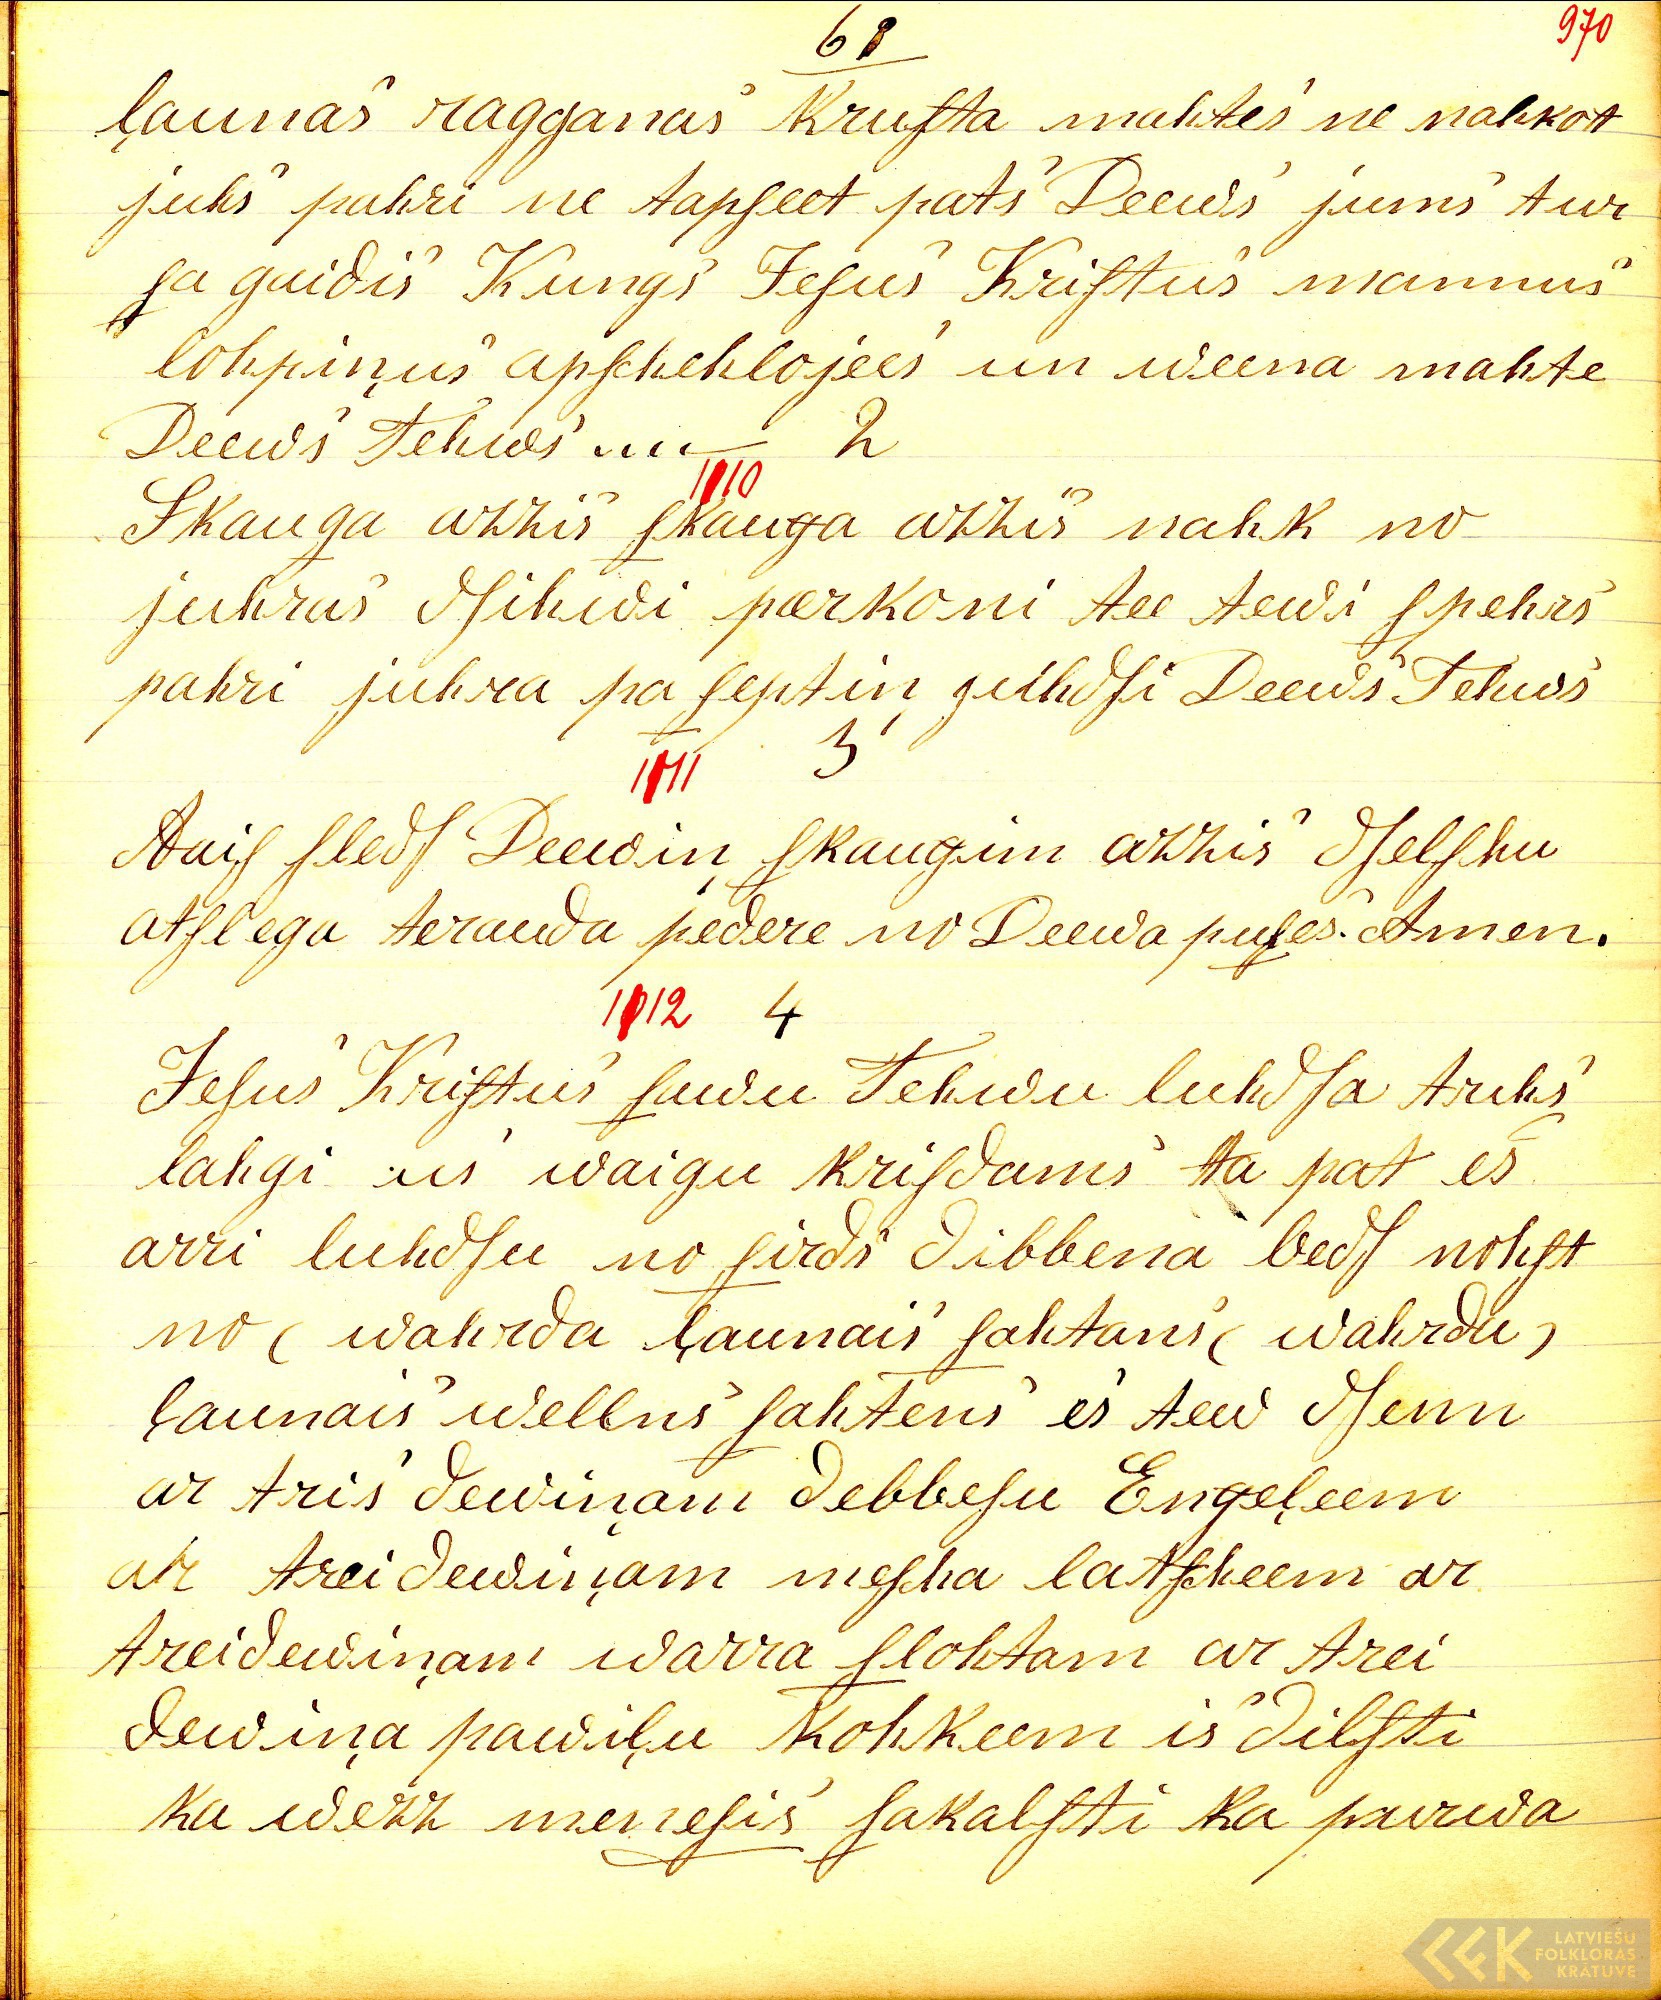 61
970
ļaunas ragganas Kruſta mahtes ne nahkott
juhs pahri ne tapſeet pats Deews jums tur
ſa gaidis Kungs Jeſus Kriſtus mannus
lohpiņus apſchehlojees un weena mahte
Deews Tehws .... 2
1110
Skauga azzis ſkauga azzis nahk no
juhras dſihwi pærkoni tee tewi ſpehrs
pahri juhra pa ſeptiņ Deews Tehws
3
1111
Aaiſ ſledſ Deewiņ ſkaugim azzis dſelſchu
atſlega terauda pedere no Deewa puſes. Amen.
1112 4
Jeſus Kriſtus ſawu Tehwu luhdſa truhs
lahgi us waigu kriſdams ta pat es
arri luhdſu no ſirds dibbena bedſ nohſt
no ( wahrda ļaunais ſahtans ( wahrdu )
ļaunais wellns ſahtens es tew dſenn
ar tris dewiņam debbeſu Engeļeem
ar trei dewiņam meſcha latſcheem ar
treidewiņam warra ſlohtam ar trei
dewiņa pawiļu kohkeem is dilſti
ka wezz meneſis ſakalſti ka purwa
LATVIEŠU
FOLKLORAS
KRĀTUVE